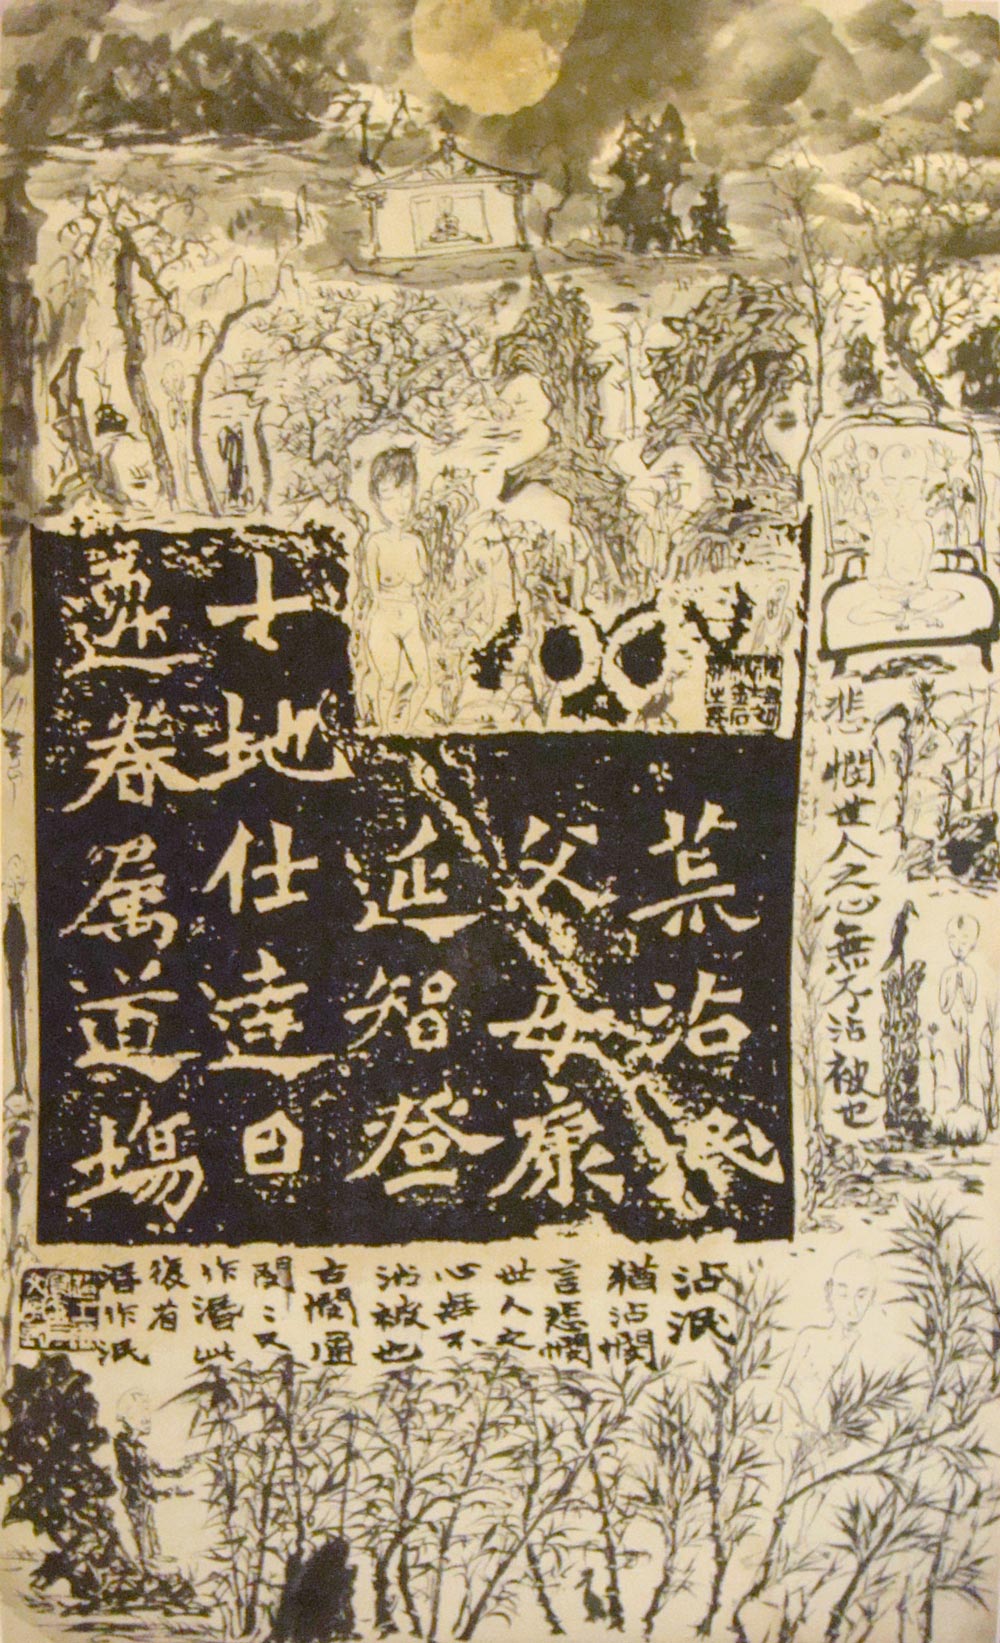 悲憫世人之心無不沾被也
荒沾泯
父母康
延智登
士地仕達日
眷属道場
沾泯
猶沾憫
言悲憫
世人之
心無不
沾被也
古憫通
閔〻又
作湣此
復有
作泯